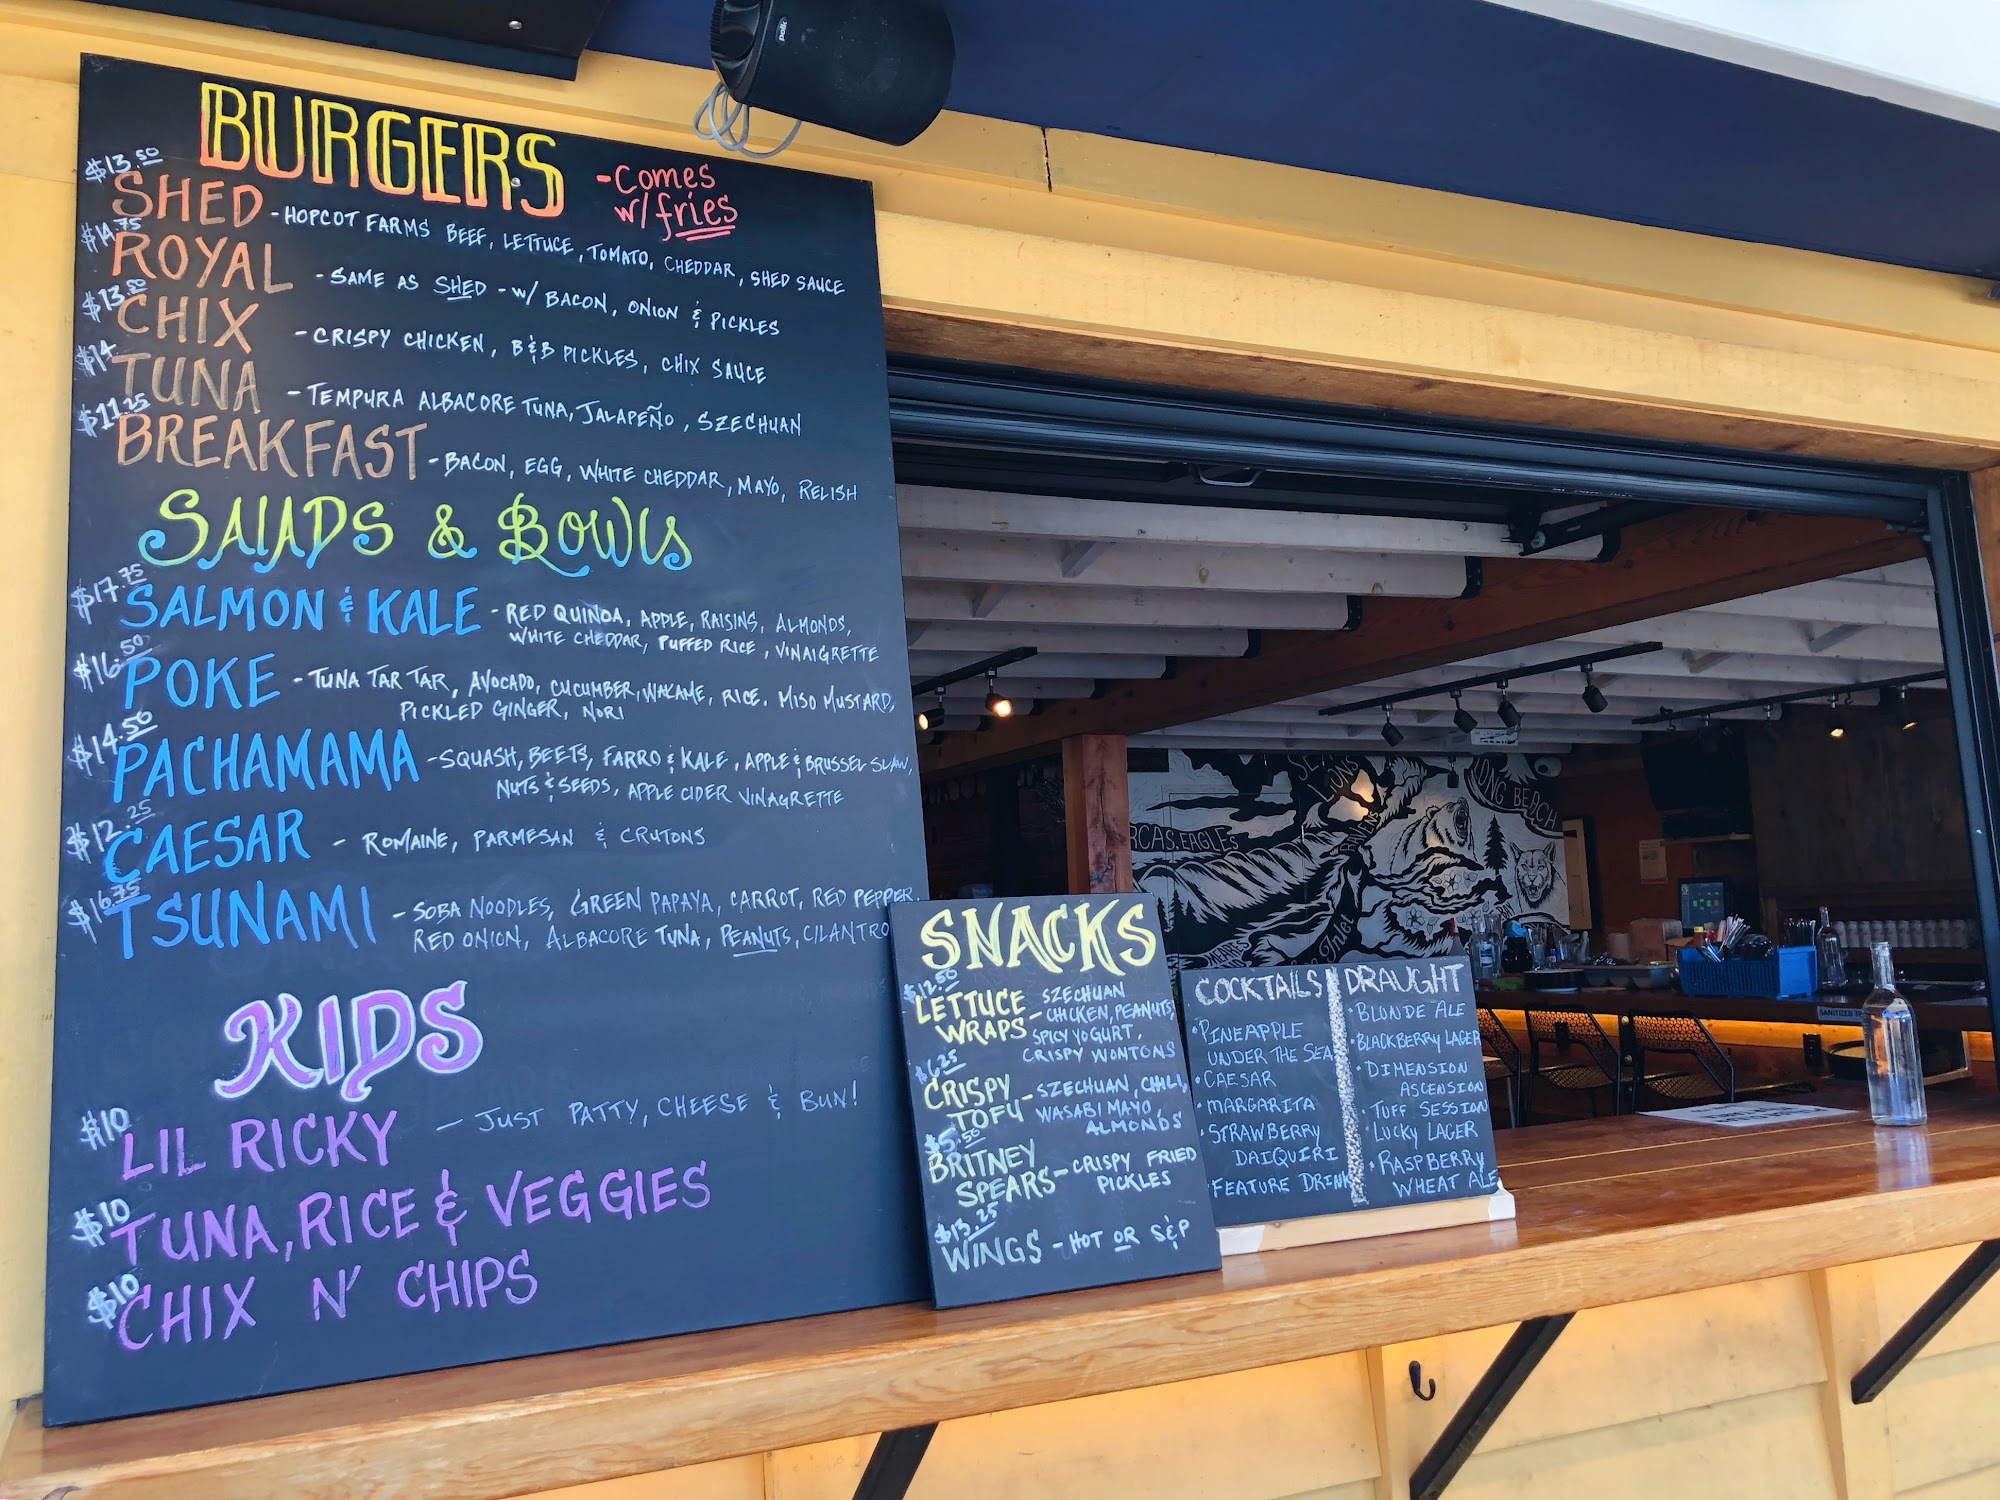 BURGERS
- COMES
W/ fries
$13.50
SHED - HOPCOT FARMS BEEF, LETTUCE, TOMATO, CHEDDAR, SHED SAUCE
$14.75
ROYAL - SAME AS SHED - W/ BACON, ONION & PICKLES
$13.50
CHIX - CRISPY CHICKEN, B&B PICKLES, CHIX SAUCE
$14
TUNA - TEMPURA ALBACORE TUNA, JALAPEÑO, SZECHUAN
$11.25
BREAKFAST - BACON, EGG, WHITE CHEDDAR, MAYO, RELISH
SALADS & BOWLS
$17.75
SALMON & KALE - RED QUINOA, APPLE, RAISINS, ALMONDS,
WHITE CHEDDAR, PUFFED RICE, VINAIGRETTE
$16.50
POKE - TUNA TAR TAR, AVOCADO, CUCUMBER, WAKAME, RICE, MISO MUSTARD,
PICKLED GINGER, NORI
$14.50
PACHAMAMA - SQUASH, BEETS, FARRO & KALE, APPLE & BRUSSEL SLAW,
NUTS & SEEDS, APPLE CIDER VINAGRETTE
$12.25
CAESAR - ROMAINE, PARMESAN & CRUTONS
$16.75
TSUNAMI - SOBA NOODLES, GREEN PAPAYA, CARROT, RED PEPPER,
RED ONION, ALBACORE TUNA, PEANUTS, CILANTRO
KIDS
$10
LIL RICKY - JUST PATTY, CHEESE & BUN!
$10
TUNA, RICE & VEGGIES
$10
CHIX N' CHIPS
SNACKS
$12.50
LETTUCE WRAPS - SZECHUAN
CHICKEN, PEANUTS,
SPICY YOGURT,
CRISPY WONTONS
$6.25
CRISPY TOFU - SZECHUAN, CHILI,
WASABI MAYO,
ALMONDS
$5.50
BRITNEY
SPEARS - CRISPY FRIED
PICKLES
$13.25
WINGS - HOT OR S&P
COCKTAILS
• PINEAPPLE
UNDER THE SEA
• CAESAR
• MARGARITA
• STRAWBERRY
DAIQUIRI
• FEATURE DRINK
DRAUGHT
• BLONDE ALE
• BLACKBERRY LAGER
• DIMENSION
ASCENSION
• TUFF SESSION
• LUCKY LAGER
• RASPBERRY
WHEAT ALE
polk
RCAS. EAGLES
LIONS
RAVENS
LONG BEACH
MEARES
Inlet
SANITIZED